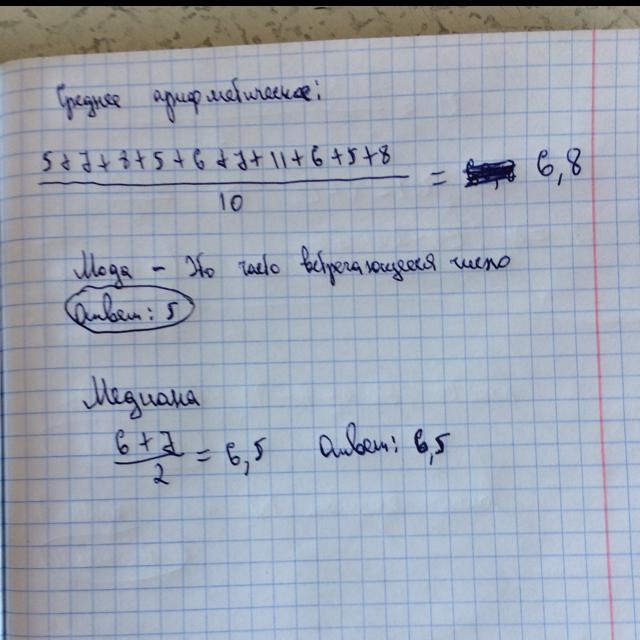 Среднее арифметическое:
5+7+8+5+6+7+11+6+5+8
10
= 6,8
Мода – Это часто встречающееся число
Ответ: 5
Медиана
6+7
2
= 6,5 Ответ: 6,5